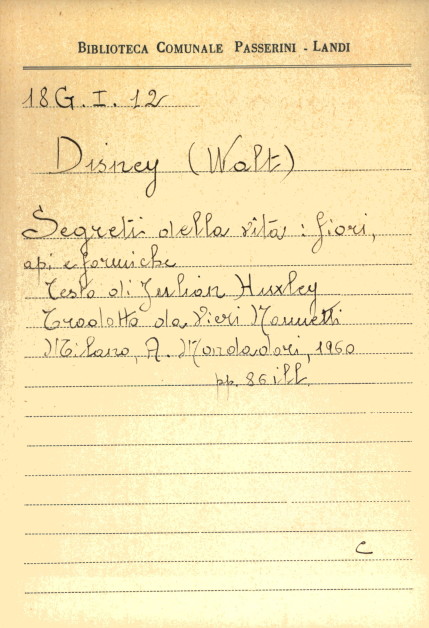 BIBLIOTECA COMUNALE PASSERINI - LANDI
18 G. I. 12
Disney (Walt)
Segreti della vita : fiori,
api e formiche
Testo di Julian Huxley
Tradotto da Pieri Nannetti
Milano, A. Mondadori, 1960
pp. 86 ill.
C